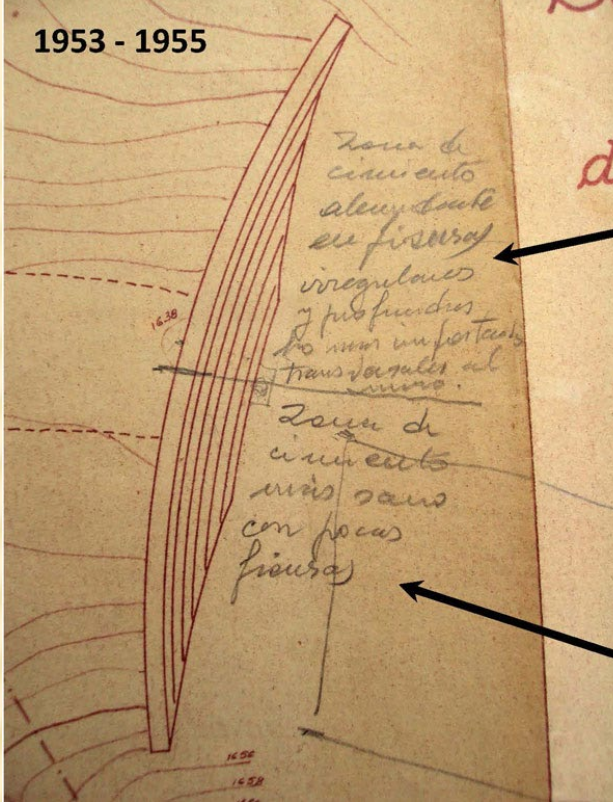 1953 - 1955
D
d
Zona de
cimiento
abundante
en fisuras
irregulares
y profundas
las mas importantes
transversales al
muro.
1638
Zona de
cimiento
más sano
con pocas
fisuras
1656
1658